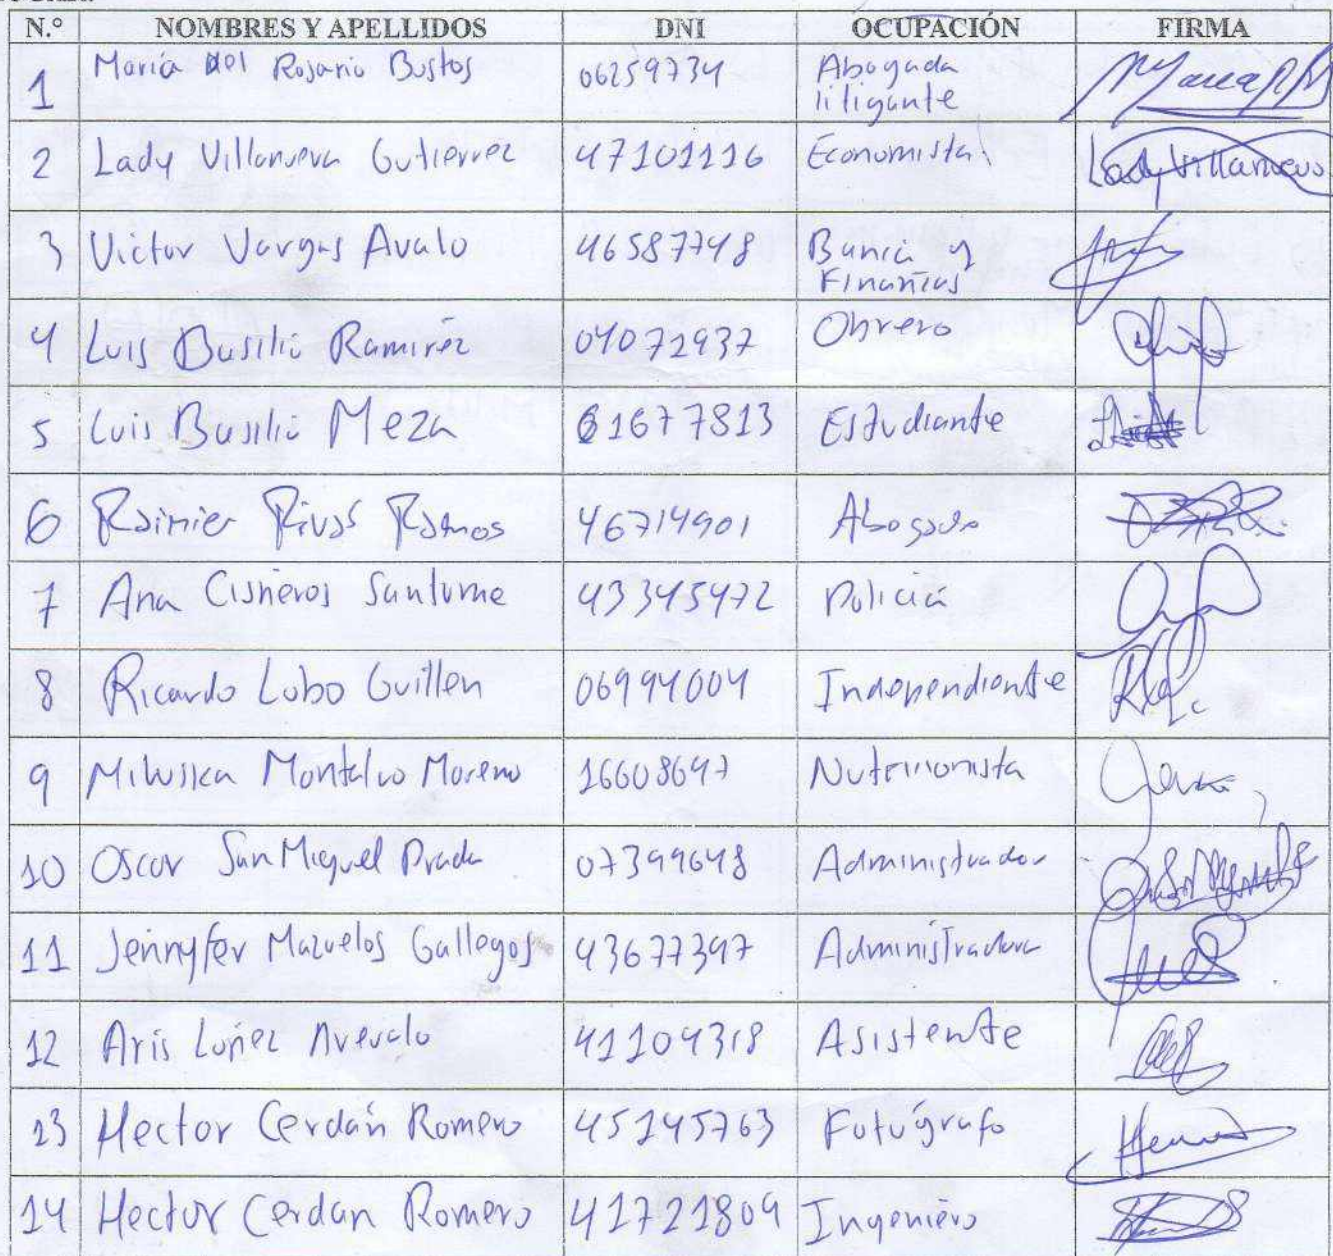 N.° NOMBRES Y APELLIDOS DNI OCUPACIÓN FIRMA
1 María del Rosario Bustos 06259734 Abogada
litigante
2 Lady Villanueva Gutierrez 47101116 Economista Lady Villanueva
3 Victor Vargas Avalo 46587748 Banca y
Finanzas
4 Luis Basilio Ramirez 04072937 Obrero
5 Luis Basilio Meza 61677813 Estudiante
6 Rainier Rivas Ramos 46714901 Abogado
7 Ana Cisneros Santome 43345472 Policía
8 Ricardo Lobo Guillen 06994004 Independiente
9 Miluska Montalvo Moreno 16608697 Nutricionista
10 Oscar San Miguel Prada 07399648 Administrador
11 Jennyfer Mazuelos Gallegos 43677397 Administradora
12 Aris Arevalo 41104318 Asistente
13 Hector Cerdán Romero 45145763 Fotógrafo
14 Hector Cerdan Romero 41721809 Ingeniero